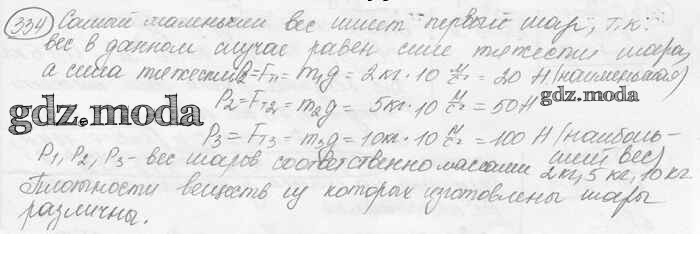 334 Самый маленький вес имеет первый шар, т.к.
вес в данном случае равен силе тяжести шара,
а сила тяжести P₁=Fт₁=m₁g = 2кг·10 м/с² = 20 Н (наименьшая)
P₂=Fт₂=m₂g = 5кг·10 м/с² = 50Н
gdz.moda
gdz.moda
P₃=Fт₃=m₃g=10кг·10 м/с² =100 Н (наиболь-
ший вес)
P₁, P₂, P₃- вес шаров соответственно массами 2кг, 5 кг, 10 кг
Плотности веществ из которых изготовлены шары
различны.